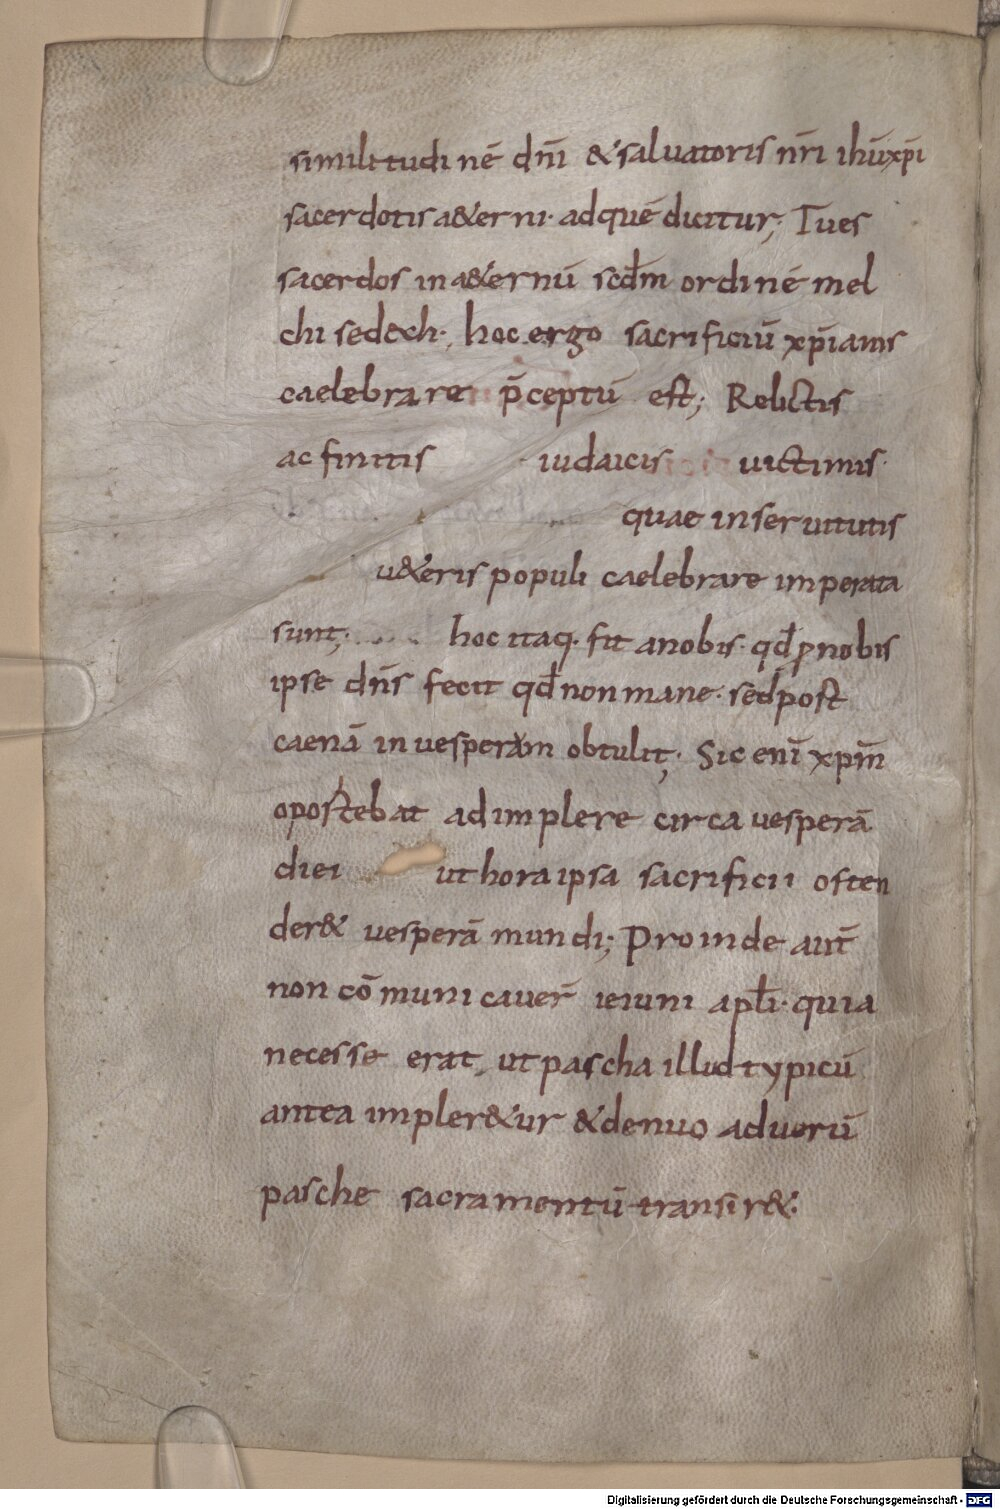 similitudinē dn̄i &saluatoris nr̄i ihū xp̄i
sacerdotis a&erni· adquē dicitur; Tu es
sacerdos in a&ernū scd̄m ordinē mel
chisedech·, hoc ergo sacrificiū xp̄ianis
caelebrare p̄ceptū est; Relictis
ac finitis iudaicis uictimis·
quae in seruitutis
u&eris populi caelebrare imperata
sunt; hoc itaq· fit a nobis· qd̄ ꝓ nobis
ipse dn̄s fecit qd̄ non mane· sed post
caenā in uesperam obtulit; Sic enī xp̄m
oportebat adimplere circa uesperā
diei ut hora ipsa sacrificii osten
der& uesperā mundi; Proinde aut̄
non cōmunicauer̄ ieiuni apl̄i· quia
necesse erat, ut pascha illud typicū
antea impler&ur &denuo ad uerū
pasche sacramentū transir&·
Digitalisierung gefördert durch die Deutsche Forschungsgemeinschaft - DFG